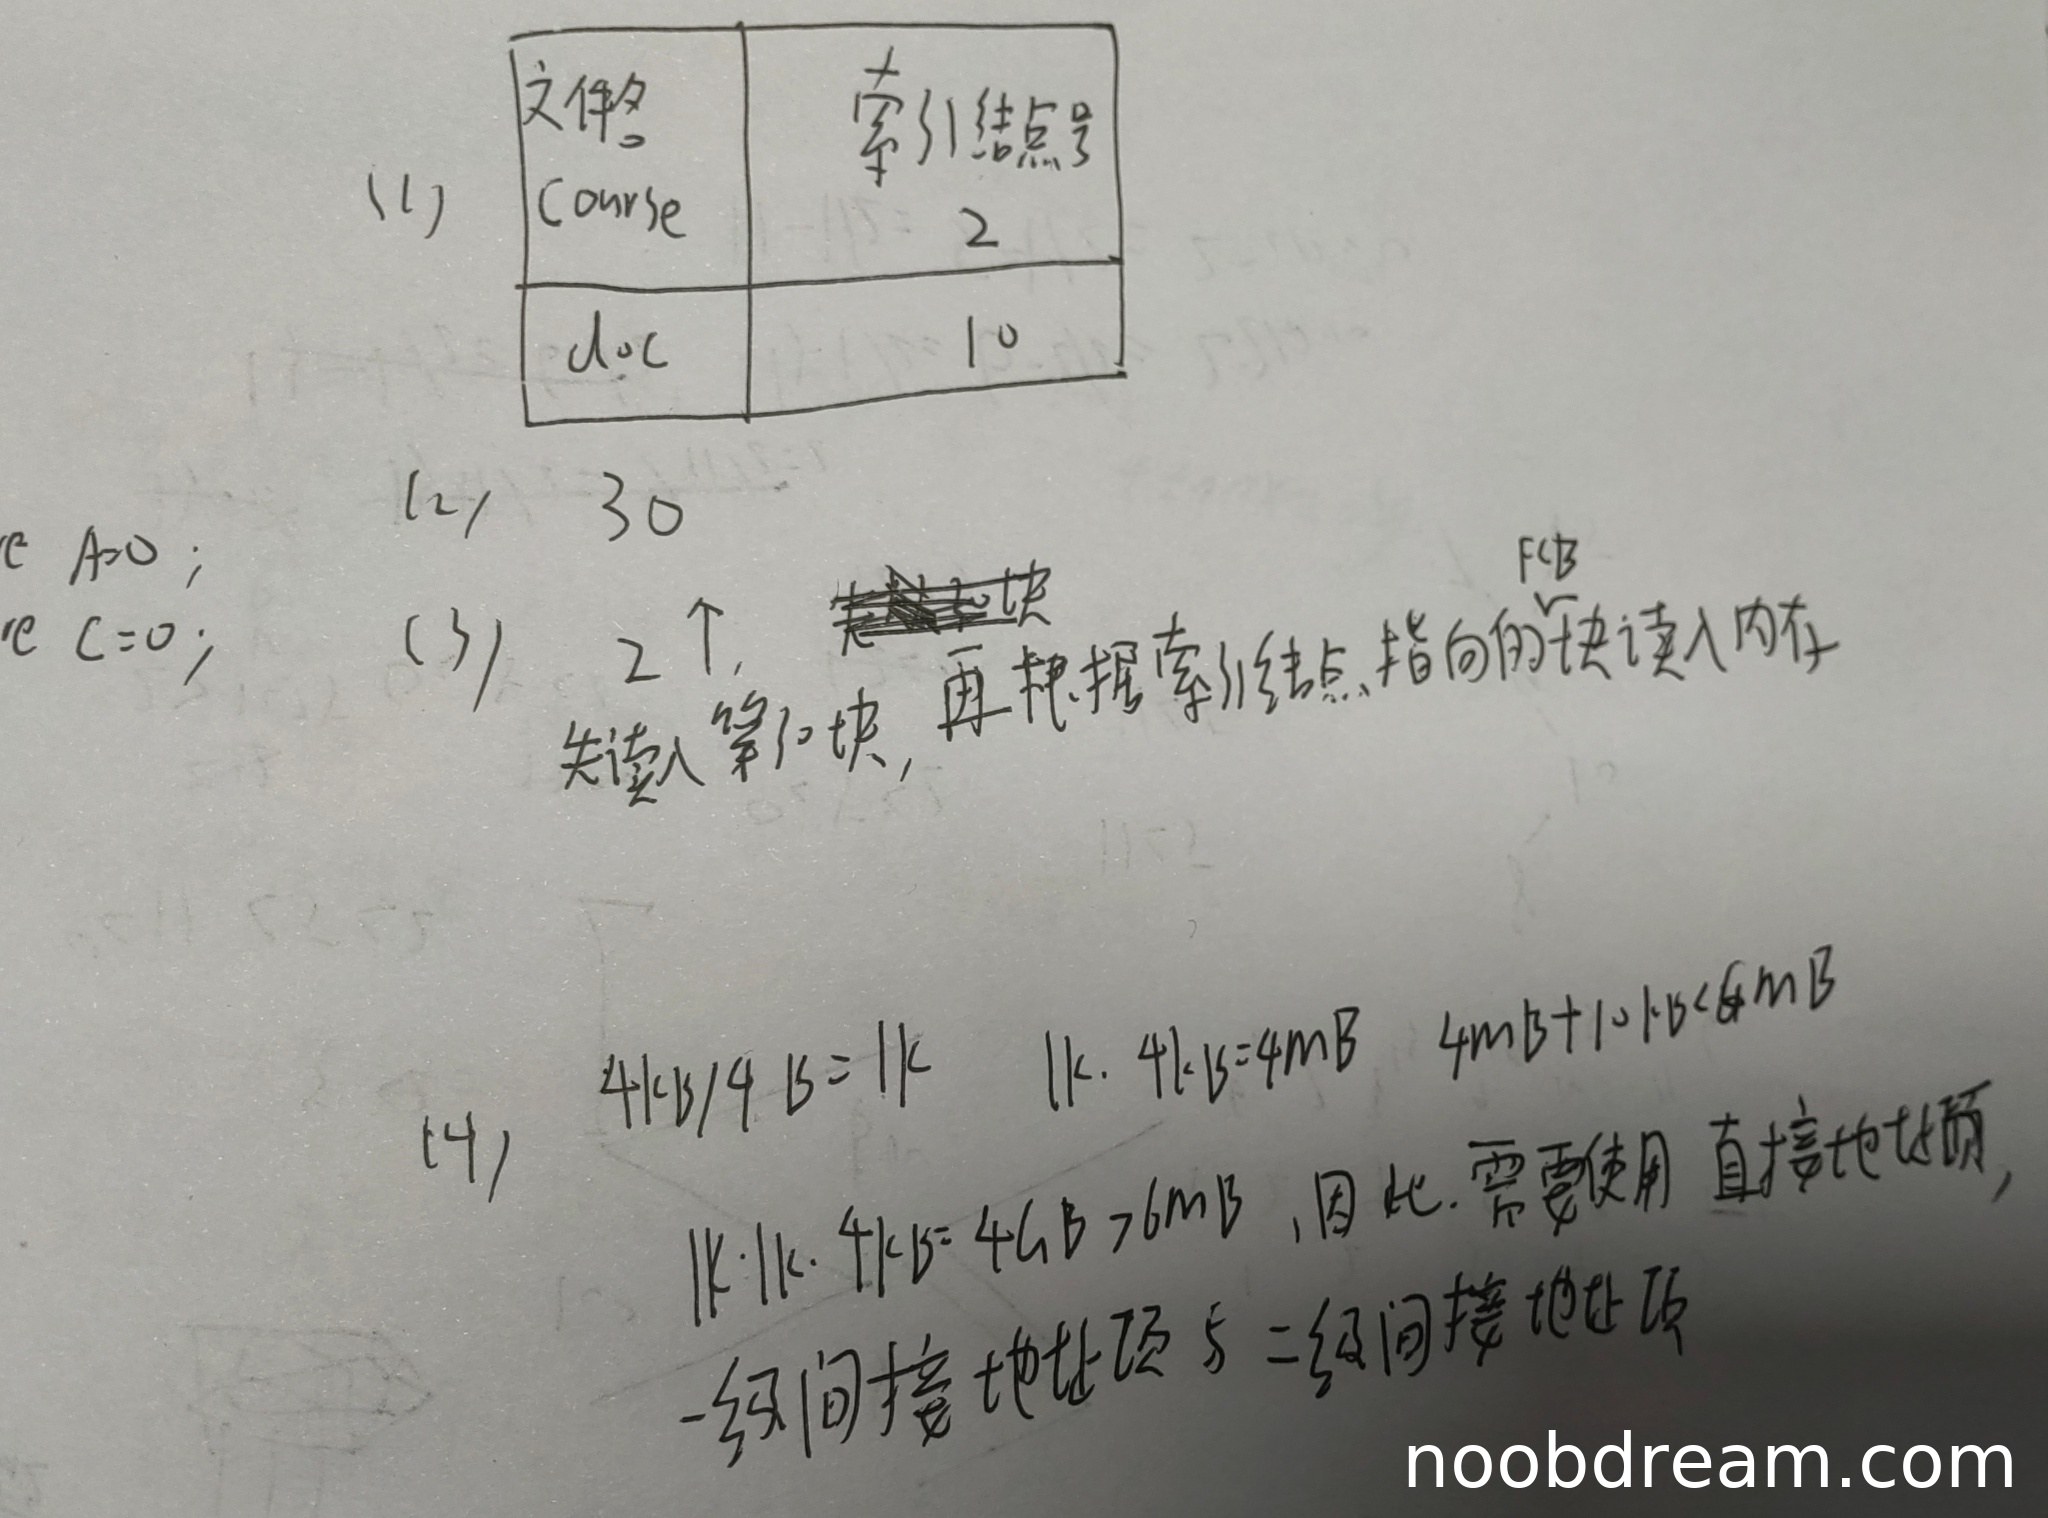 (1)
文件名 索引结点号
course 2
doc 10
(2) 30
re A=0;
re C=0;
(3) 2个,
先读入第30块,再根据索引结点指向的FCB块读入内存
(4) 4kB/4B=1k 1k·4kB=4mB 4mB+10kB<6mB
1k·1k·4kB=4GB>6mB,因此.需要使用直接地址项,
一级间接地址项与二级间接地址项
noobdream.com